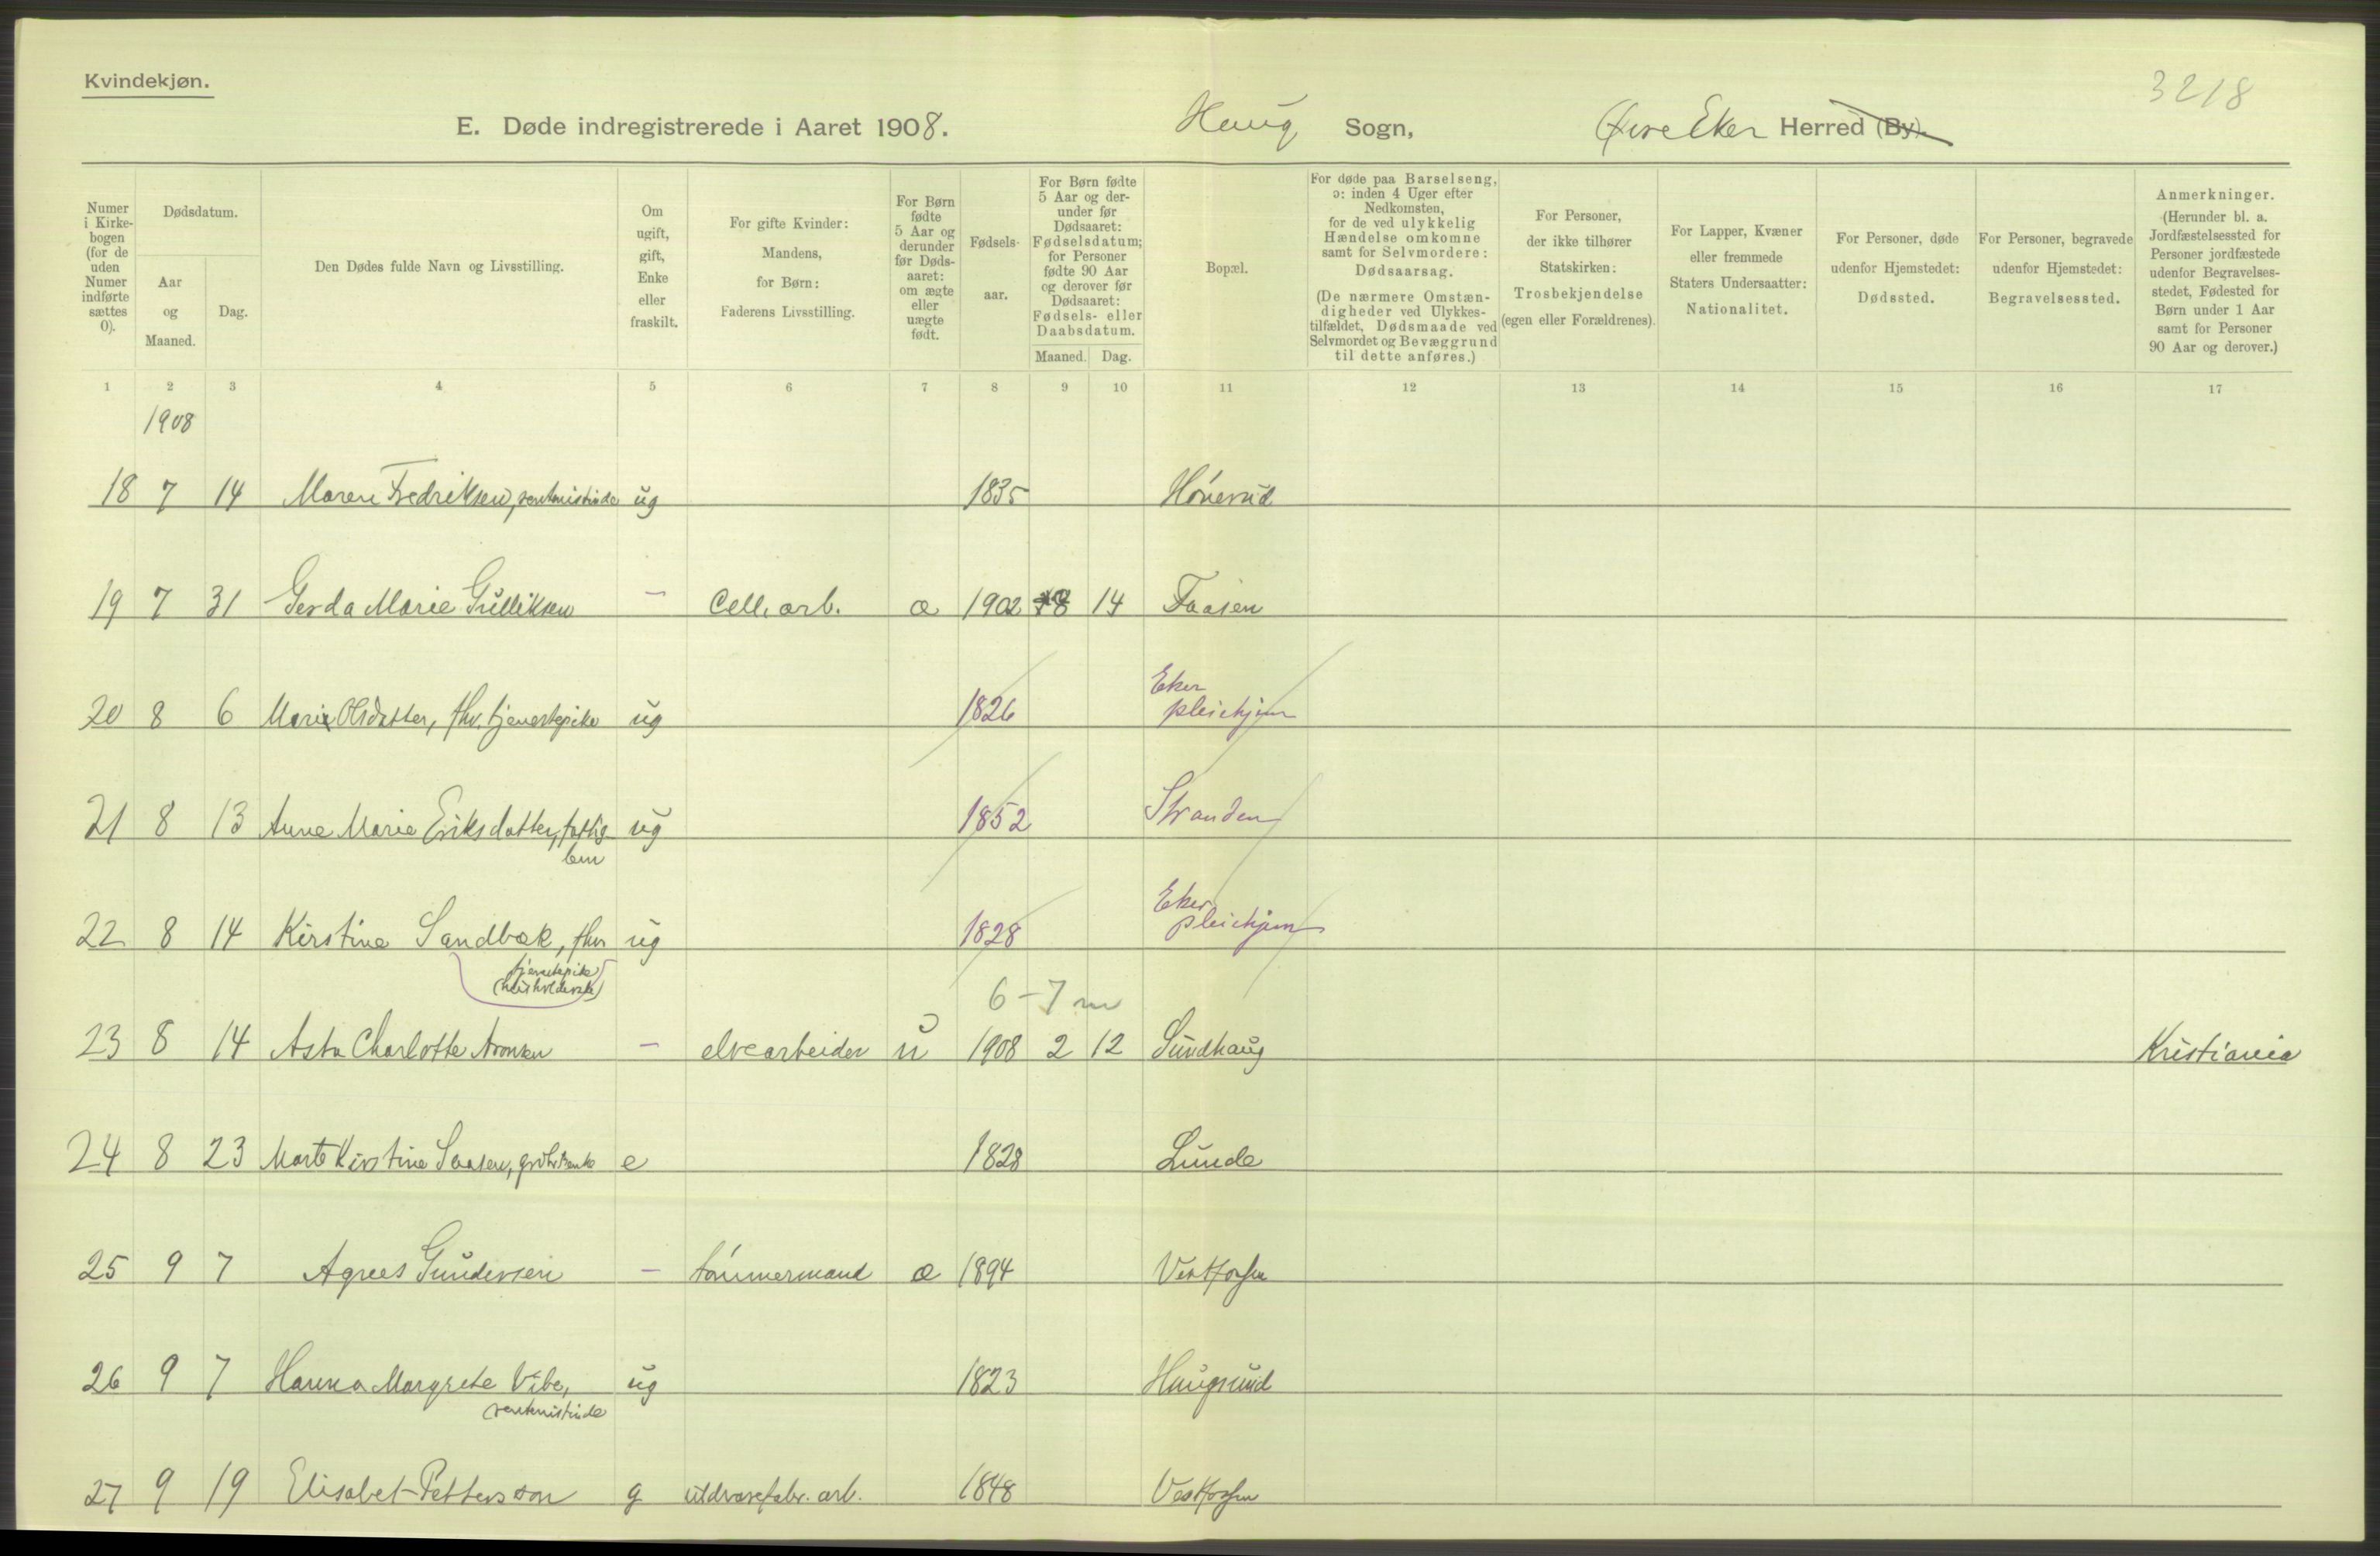 Kvindekjøn.
3218
E. Døde indregistrerede i Aaret 1908. Haug Sogn, Øvre Eker Herred (By).
Numer i Kirke-bogen (for de uden Numer indførte sættes 0).
Dødsdatum.
Aar og Maaned.
Dag.
Den Dødes fulde Navn og Livsstilling.
Om ugift, gift, Enke eller fraskilt.
For gifte Kvinder: Mandens, for Børn: Faderens Livsstilling.
For Børn fødte 5 Aar og derunder før Døds-aaret: om ægte eller uægte født.
Fødsels-aar.
For Børn fødte 5 Aar og der-under før Dødsaaret: Fødselsdatum; for Personer fødte 90 Aar og derover før Dødsaaret: Fødsels- eller Daabsdatum.
Maaned. Dag.
Bopæl.
For døde paa Barselseng, ɔ: inden 4 Uger efter Nedkomsten, for de ved ulykkelig Hændelse omkomne samt for Selvmordere: Dødsaarsag.
(De nærmere Omstæn-digheder ved Ulykkes-tilfældet, Dødsmaade ved Selvmordet og Bevæggrund til dette anføres.)
For Personer, der ikke tilhører Statskirken: Trosbekjendelse (egen eller Forældrenes).
For Lapper, Kvæner eller fremmede Staters Undersaatter: Nationalitet.
For Personer, døde udenfor Hjemstedet: Dødssted.
For Personer, begravede udenfor Hjemstedet: Begravelsessted.
Anmerkninger. (Herunder bl. a. Jordfæstelsessted for Personer jordfæstede udenfor Begravelses-stedet, Fødested for Børn under 1 Aar samt for Personer 90 Aar og derover.)
1 2 3 4 5 6 7 8 9 10 11 12 13 14 15 16 17
1908
18 7 14 Maren Fredriksen, rentenistinde ug 1835 Hónerud
19 7 31 Gerda Marie Gulliksen — Cell. arb. æ 1902 8 14 Faasen
20 8 6 Marie Olsdatter, fhv. tjenestepike ug 1826 Eker
pleiehjem
21 8 13 Anne Marie Eriksdatter, fattig- ug 1852 Stranden
lem
22 8 14 Kirstine Sandbæk, fhv ug 1828 Eker
pleiehjem
tjenestepike
(husholderske)
6-7 m
23 8 14 Asta Charlotte Aronsen — elvearbeider u 1908 2 12 Sundhaug Kristiania
24 8 23 Marte Kirstine Saasen, e 1828 Lunde
25 9 7 Agnes Gundersen — tómmermand æ 1894 Vestfossen
26 9 7 Hanna Margrete Vibe, ug 1823 Haugsund
(rentenistinde
27 9 19 Elisabet Petterson g uldvarefabr. arb. 1848 Vestfossen